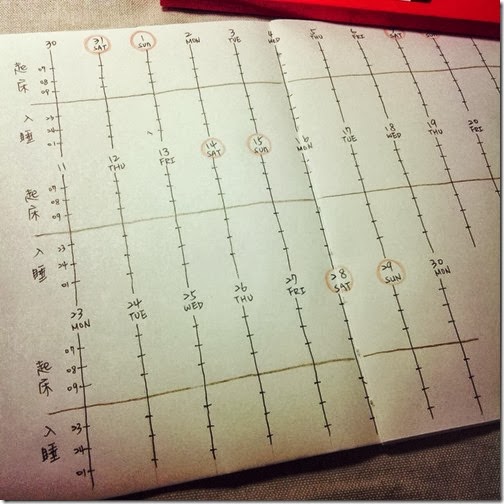 30 31 SAT 1 SUN 2 MON 3 TUE 4 WED 5 THU 6 FRI SAT SUN
起床
07
08
09
入睡
23
24
01
11 12 THU 13 FRI 14 SAT 15 SUN 16 MON 17 TUE 18 WED 19 THU 20 FRI
起床
07
08
09
入睡
23
24
01
23 MON 24 TUE 25 WED 26 THU 27 FRI 28 SAT 29 SUN 30 MON
起床
07
08
09
入睡
23
24
01